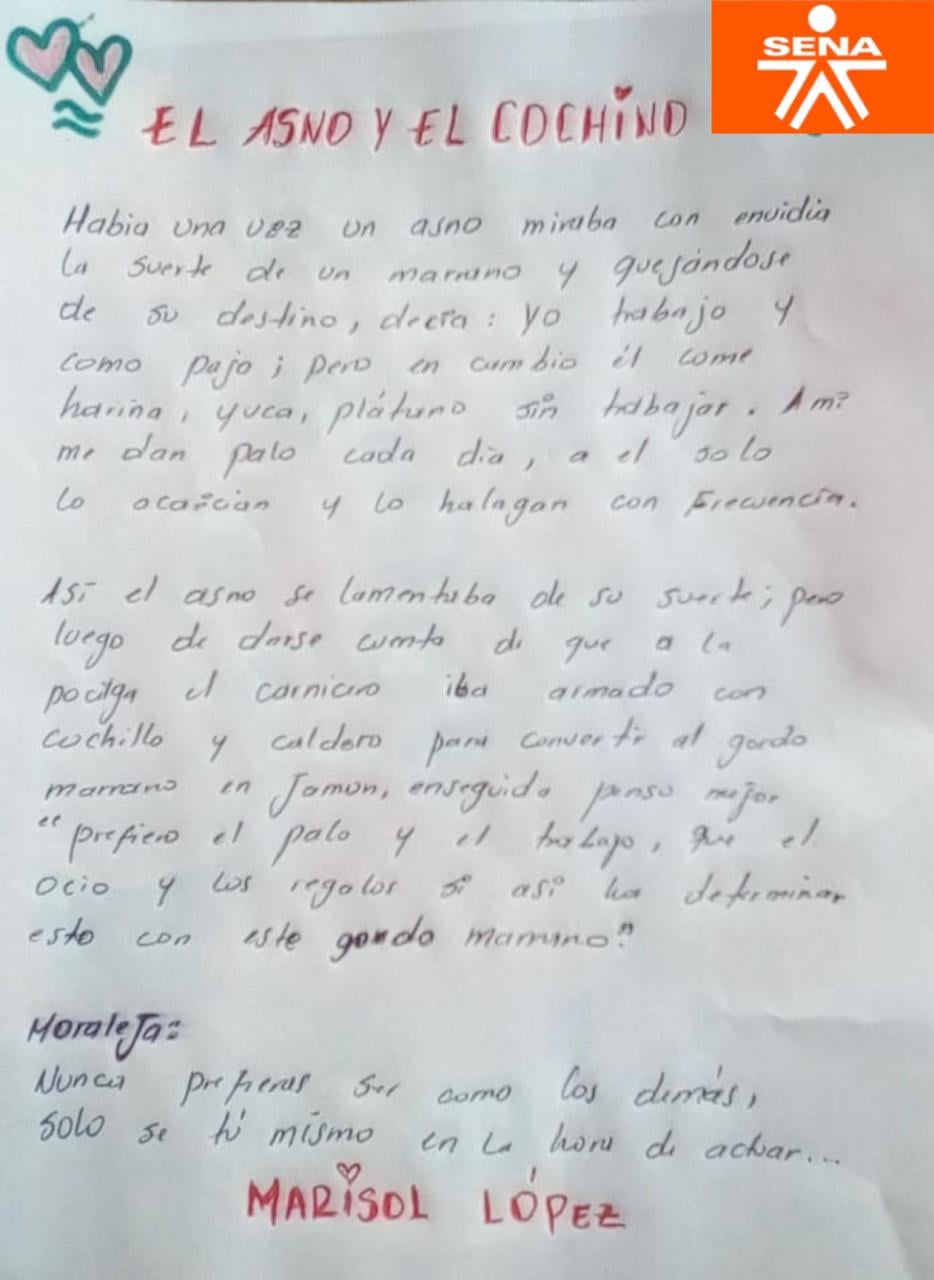 SENA
EL ASNO Y EL COCHINO
Habia una vez un asno miraba con envidia
la suerte de un marrano y quejándose
de su destino, decía: yo trabajo y
como paja; pero en cambio él come
harina, yuca, plátano sin trabajar. A mi
me dan palo cada dia, a el solo
lo acarician y lo halagan con Frecuencia.
Así el asno se lamentaba de su suerte; pero
luego de darse cuenta de que a la
pocilga el carnicero iba armado con
cochillo y caldero para convertir al gordo
marrano en Jamon, enseguida penso mejor
"prefiero el palo y el trabajo, que el
ocio y los regalos si asi ha determinar
esto con este gordo marrano"
Moraleja:
Nunca prefieras ser como los demás,
solo se tú mismo en la hora de actuar...
MARISOL LÓPEZ